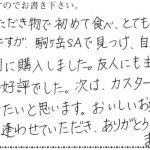 すのでお書き下さい。
ただき物で初めて食べ、とても
ますが、駒ヶ岳SAで見つけ、自
用に購入しました。友人にも土
好評でした。次は、カスター
たいと思います。おいしいお
逢わせていただき、ありがとう